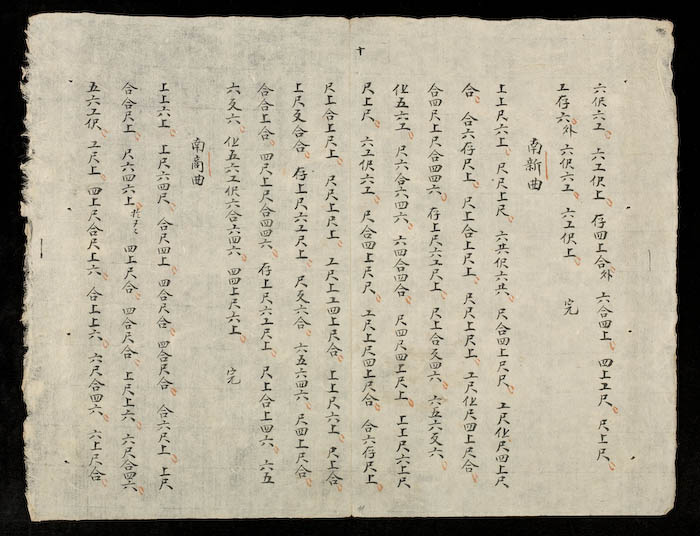 十
六伬六工 六工伬上 存四上合外 六合四上 四上工尺 尺上尺
工存六外 六伬六工 六工伬上 完
南新曲
上上尺六上 尺尺上尺 六共伬六共 尺合四上尺尺 工尺仩尺四上尺
合 合六存尺上 尺上合上尺上 尺尺上尺上 工尺仩尺四上尺合
合四尺上尺合四四六 存上尺六工尺上 尺上合交四六 六五六交六
仩五六工 尺六合六四六 六四合四合 尺四尺四上尺上 上工尺六上尺
尺上尺 六工伬六工 尺合四上尺尺 工尺上尺四上尺合 合六存尺上
尺上合上尺上 尺尺上尺上 工尺上工四上尺合 上上尺六上 尺上合
上尺交合合 存上尺六工尺上 尺交六合 六五六四六 尺四上尺合
合合上合 四尺上尺合四四六 存上尺六工尺上 尺上合上四六 六五
六交六 仩五六工伬六合六四六 四四上尺六上 完
南商曲
上上六上 上尺六四尺 合尺四上 四合尺合 四合尺合 合六尺上 上尺
合合尺上 尺六四六上 四上尺合 四合尺合 上尺上六 六尺合四六
五六工伬 工尺上 四上尺合尺上六 合上上六 六尺合四六 六上尺合